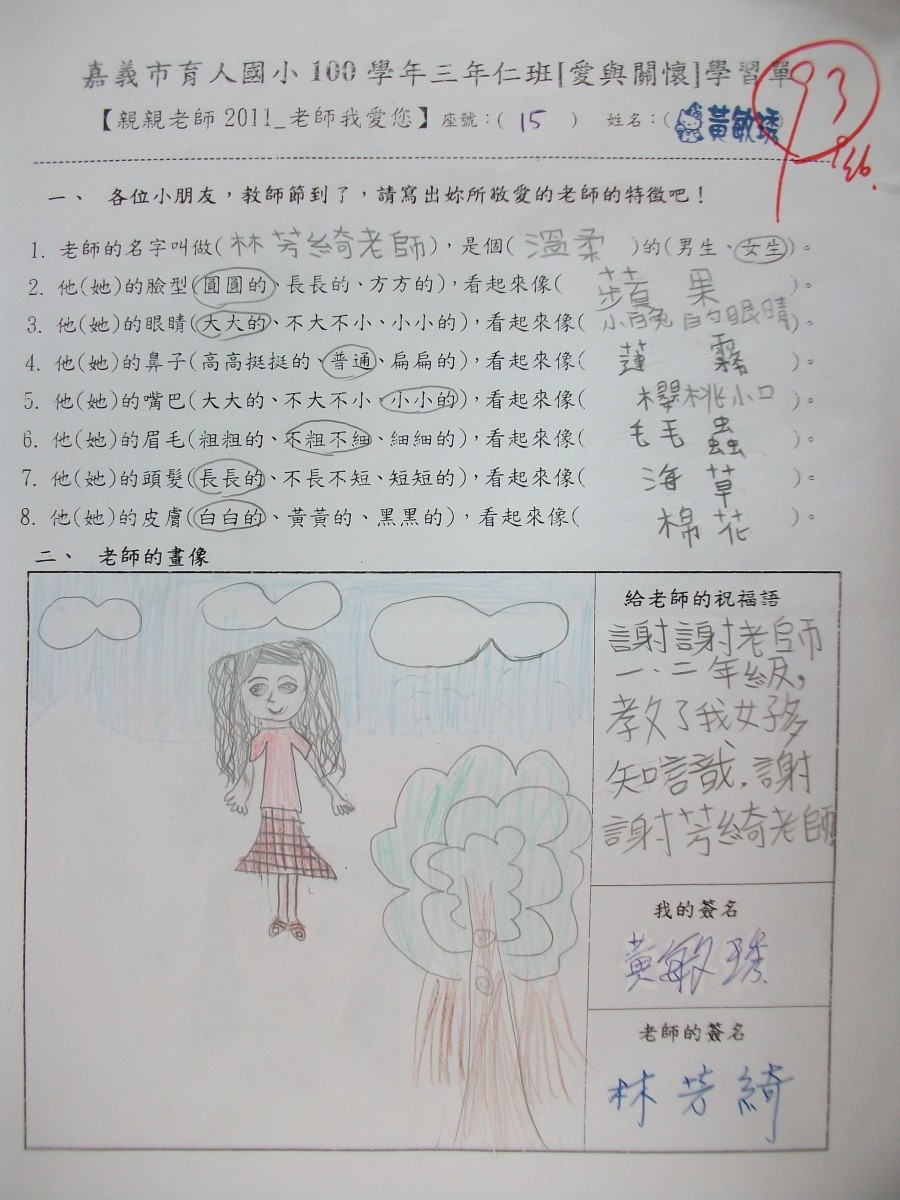 嘉義市育人國小100學年三年仁班[愛與關懷]學習單
93
9/26.
【親親老師2011_老師我愛您】座號:( 15 ) 姓名:( 黃敏琇
一、 各位小朋友,教師節到了,請寫出妳所敬愛的老師的特徵吧!
1. 老師的名字叫做(林芳綺老師),是個( 溫柔 )的(男生、女生)。
2. 他(她)的臉型(圓圓的、長長的、方方的),看起來像( 蘋果 )。
3. 他(她)的眼睛(大大的、不大不小、小小的),看起來像( 小白兔的眼睛 )。
4. 他(她)的鼻子(高高挺挺的、普通、扁扁的),看起來像( 蓮霧 )。
5. 他(她)的嘴巴(大大的、不大不小、小小的),看起來像( 櫻桃小口 )。
6. 他(她)的眉毛(粗粗的、不粗不細、細細的),看起來像( 毛毛蟲 )。
7. 他(她)的頭髮(長長的、不長不短、短短的),看起來像( 海草 )。
8. 他(她)的皮膚(白白的、黃黃的、黑黑的),看起來像( 棉花 )。
二、 老師的畫像
給老師的祝福語
謝謝老師
一、二年級,
教了我好多
知識,謝
謝芳綺老師!
我的簽名
黃敏琇
老師的簽名
林芳綺